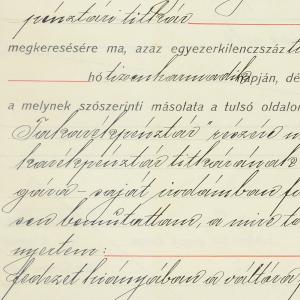 pénztári titkár
megkeresésére ma, azaz egyezerkilenczszáz ti
hó tizenharmadik napján, dé
a melynek szószerinti másolata a tulsó oldalon
Takarékpénztár" részére
karékpénztár titkárának
gává - saját irodámban fo
sen bemutattam, a mire to
nyertem:
fedezet hiányában a váltó